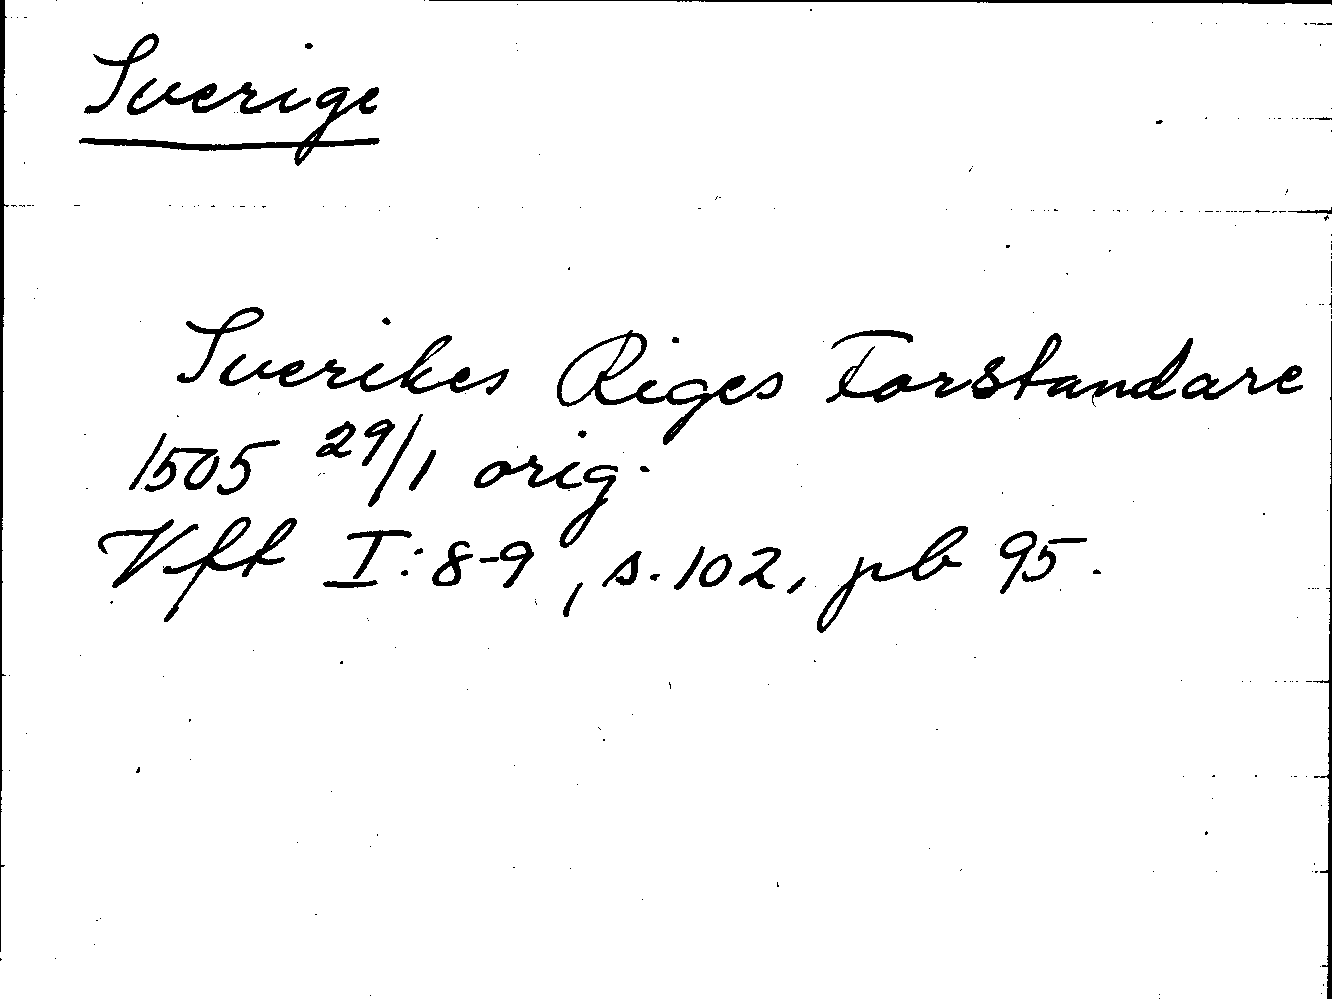 Sverige
Sverikes Riges Forstandare
1505 29/1 orig.
Vft I:8-9, s. 102, pb 95.